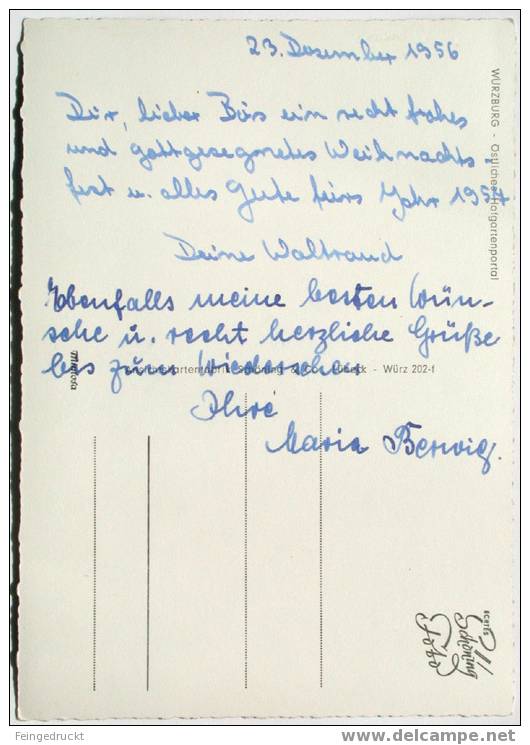 23. Dezember 1956
Dir, lieber Bär ein recht frohes
und gottgesegnetes Weihnachts-
fest u. alles Gute fürs Jahr 1957
Deine Waltraud
Ebenfalls meine besten Wün-
sche u. recht herzliche Grüße
bis zum Wiedersehen
Ihre
Maria Berwig.
WÜRZBURG - Östliches Hofgartenportal
Ansichtskartenfabrik Schöning & Co., Lübeck - Würz 202-f
mimosa
echtes
Schöning
Foto
Feingedruckt
www.delcampe.net